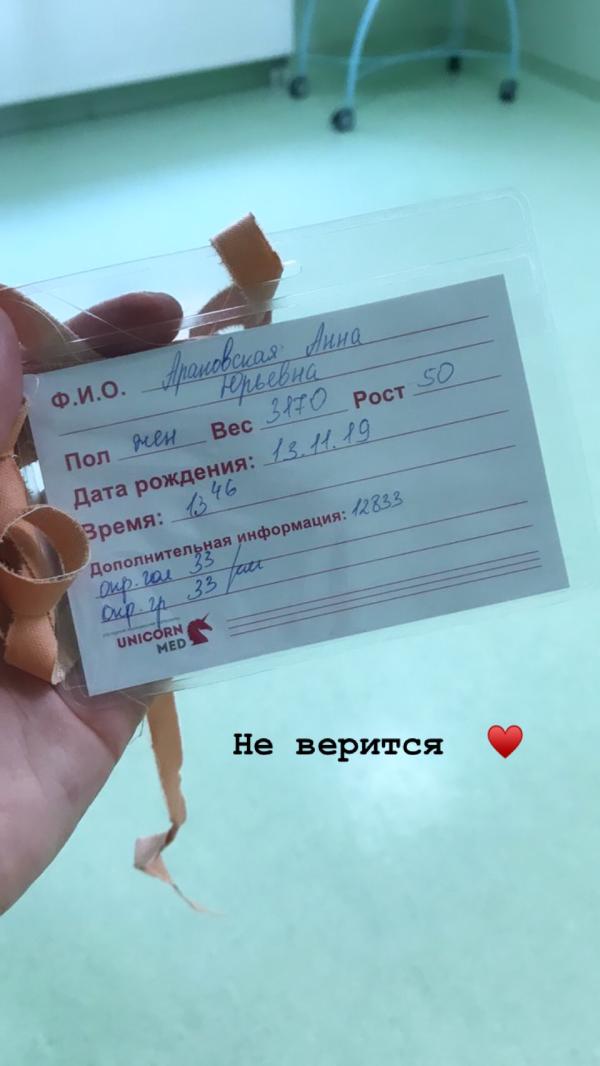 Ф.И.О. Арановская Анна
Юрьевна
Пол жен Вес 3170 Рост 50
Дата рождения: 13.11.19
Время: 13 46
Дополнительная информация: 12833
окр. гол 33
окр. гр 33 / см
UNICORN
MED
Не верится ♥️